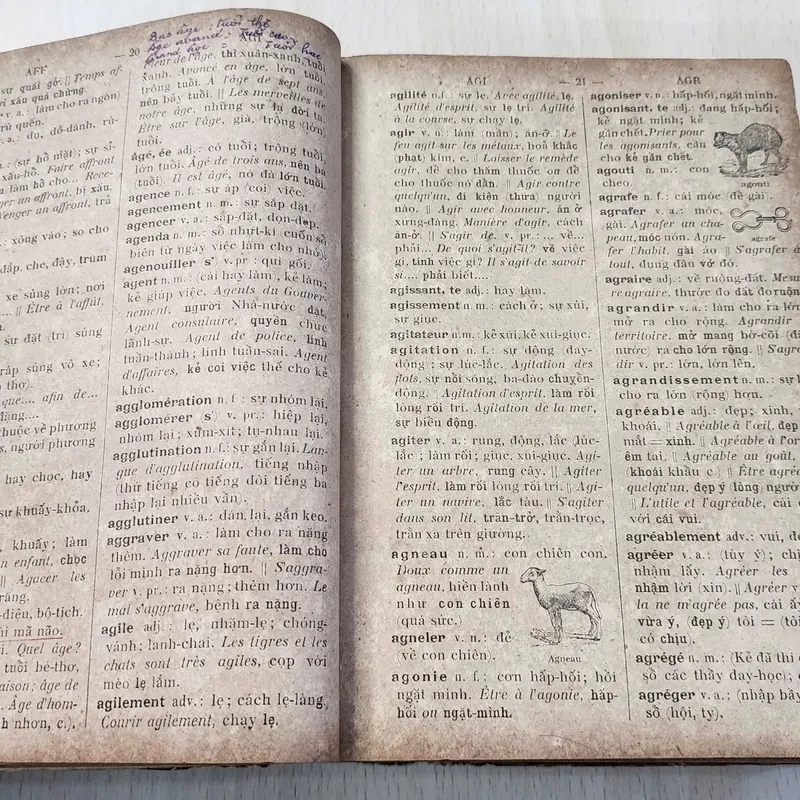 Bas âge : tuổi thơ
Age avancé = tuổi cao
Grand âge = tuổi
AFF
— 20
AGI
sự quái gở. || Temps af-
ời xấu quá chừng.
v. a. : làm cho ra ngon)
rủ quến.
v. a. : dụ, dỗ-dành, rủ-
(sự hổ mặt) ; sự sỉ-
xấu-hổ. Faire affront
làm hổ cho... Rece-
ger un affront, bị xấu.
Venger un affront, trả
xông vào ; so cho
đắp, che, đậy, trùm
xe súng lớn ; nơi
|| Être à l'affût,
sự đặt (tri) súng
ráp súng vô xe ;
thợ).
que.... afin de...
đặng....
thuộc về phương
s, người phương
hay chọc, hay
sự khuấy-khỏa,
khuấy ; làm
n enfant, chọc
|| Agacer les
răng.
-điêu, bô-tịch.
mã não.
i. Quel âge?
tuổi bé-thơ,
aison ; âge de
Âge d'hom-
nh nhơn, c.).
fleur de l'âge, thì xuân-xanh, tuổi
xanh. Avancé en âge, lớn tuổi,
trọng tuổi. À l'âge de sept ans,
nên bảy tuổi. || Les merveilles de
notre âge, những sự lạ đời ta.
Être sur l'âge, già, trộng (lớn)
tuổi.
âgé, ée adj. : có tuổi ; trộng tuổi,
lớn tuổi. Âgé de trois ans, nên ba
(tuổi). Il est âgé, nó đà lớn tuổi.
agence n. f. : sự áp (coi) việc.
agencement n. m. : sự sắp đặt.
agencer v. a. : sắp-đặt, dọn-dẹp.
agenda n. m. : sổ nhựt-kí (cuốn sổ
biên từ ngày việc làm cho nhớ).
agenouiller (s') v. pr : quì gối.
agent n. m. : (cái hay làm), kẻ làm ;
kẻ giúp việc. Agents du Gouver-
nement, người Nhà-nước đặt.
Agent consulaire, quyền chức
lãnh-sự. Agent de police, lính
tuần-thành ; lính tuần-sai. Agent
d'affaires, kẻ coi việc thế cho kẻ
khác.
agglomération n. f. : sự nhóm lại.
agglomérer (s') v. pr. : hiệp lại,
nhóm lại ; xúm-xít ; tụ-nhau lại.
agglutination n. f. : sự gắn lại. Lan-
gue d'agglutination, tiếng nhập
(thứ tiếng có tiếng đôi tiếng ba
nhập lại nhiều vần).
agglutiner v. a. : dán lại, gắn keo.
aggraver v. a. : làm cho ra nặng
thêm. Aggraver sa faute, làm cho
lỗi mình ra nặng hơn. || S'aggra-
ver v. pr. : ra nặng ; thêm hơn. Le
mal s'aggrave, bệnh ra nặng.
agile adj. : lẹ, nhậm-lẹ ; chóng-
vánh ; lanh-chai. Les tigres et les
chats sont très agiles, cọp với
mèo lẹ lắm.
agilement adv. : lẹ ; cách lẹ-làng.
Courir agilement, chạy lẹ.
AGI
— 21 —
AGR
agilité n. f. : sự lẹ. Avec agilité, lẹ.
Agilité d'esprit, sự lẹ trí. Agilité
à la course, sự chạy lẹ.
agir v. n. : làm (mần) ; ăn-ở. || Le
feu agit sur les métaux, hoả khắc
(phạt) kim, c. || Laisser le remède
agir, để cho thấm thuốc ou để
cho thuốc nó dần. || Agir contre
quelqu'un, đi kiện (thưa) người
nào. || Agir avec honneur, ăn ở
xứng-đáng. Manière d'agir, cách
ăn-ở. || S'agir de, v. pr. : ... về...
phải... De quoi s'agit-il? về việc
gì, tính việc gì? Il s'agit de savoir
si.... phải biết....
agissant, te adj. : hay làm.
agissement n. m. : cách ở ; sự xúi,
sự giục.
agitateur n. m. : kẻ xúi, kẻ xui-giục.
agitation n. f. : sự động (day-
động) ; sự lúc-lắc. Agitation des
flots, sự nổi sóng, ba-đào chuyển-
động. || Agitation d'esprit, làm rối
lòng rối trí. Agitation de la mer,
sự biển động.
agiter v. a. : rung, động, lắc (lúc-
lắc ; làm rối ; giục, xui-giục. Agi-
ter un arbre, rung cây. || Agiter
l'esprit, làm rối lòng rối trí. || Agi-
ter un navire, lắc tàu. || S'agiter
dans son lit, trăn-trở, trằn-trọc,
trần xa trên giường.
agneau n. m. : con chiên con.
Doux comme un
agneau, hiền lành
như con chiên
(quá sức.)
Agneau
agneler v. n. : đẻ
(về con chiên).
agonie n. f. : cơn hấp-hối ; hồi
ngặt mình. Être à l'agonie, hấp-
hối ou ngặt-mình.
agoniser v. n. : hấp-hối, ngặt mình.
agonisant, te adj. : đang hấp-hối ;
kẻ ngặt mình ; kẻ
gần chết. Prier pour
les agonisants, cầu
cho kẻ gần chết.
agouti n. m. : con
cheo.
agouti
agrafe n. f. : cái móc (để gài).
agrafer v. a. : móc,
gài. Agrafer un cha-
peau, móc nón. Agra-
fer l'habit, gài áo || S'agrafer à
tout, đụng đâu vớ đó.
agrafe
agraire adj. : về ruộng-đất. Mesu-
re agraire, thước đo đất đo ruộng
agrandir v. a. : làm cho ra lớn
mở ra cho rộng. Agrandir
territoire, mở mang bờ-cõi (đất
nước) ra cho lớn rộng. || S'agran-
dir v. pr. : lớn, lớn lên.
agrandissement n. m. : sự
cho ra lớn (rộng) hơn.
agréable adj. : đẹp ; xinh,
khoái. Agréable à l'œil, đẹp
mắt = xinh. || Agréable à l'or
êm tai. Agréable au goût,
(khoái khẩu c.) || Être agréa
quelqu'un, đẹp ý (lòng) người
|| L'utile et l'agréable, cái
với cái vui.
agréablement adv. : vui, đẹ
agréer v. a. : (tùy ý) ; chịu
nhậm lấy. Agréer les
nhậm lời (xin). || Agréer v.
la ne m'agrée pas, cái ấ
vừa ý, (đẹp ý) tôi = (tôi
có chịu).
agrégé n. m. : (Kẻ đã thi
số các thầy day-học) ; c
agréger v. a. : (nhập bầy
sồ (hội, ty).